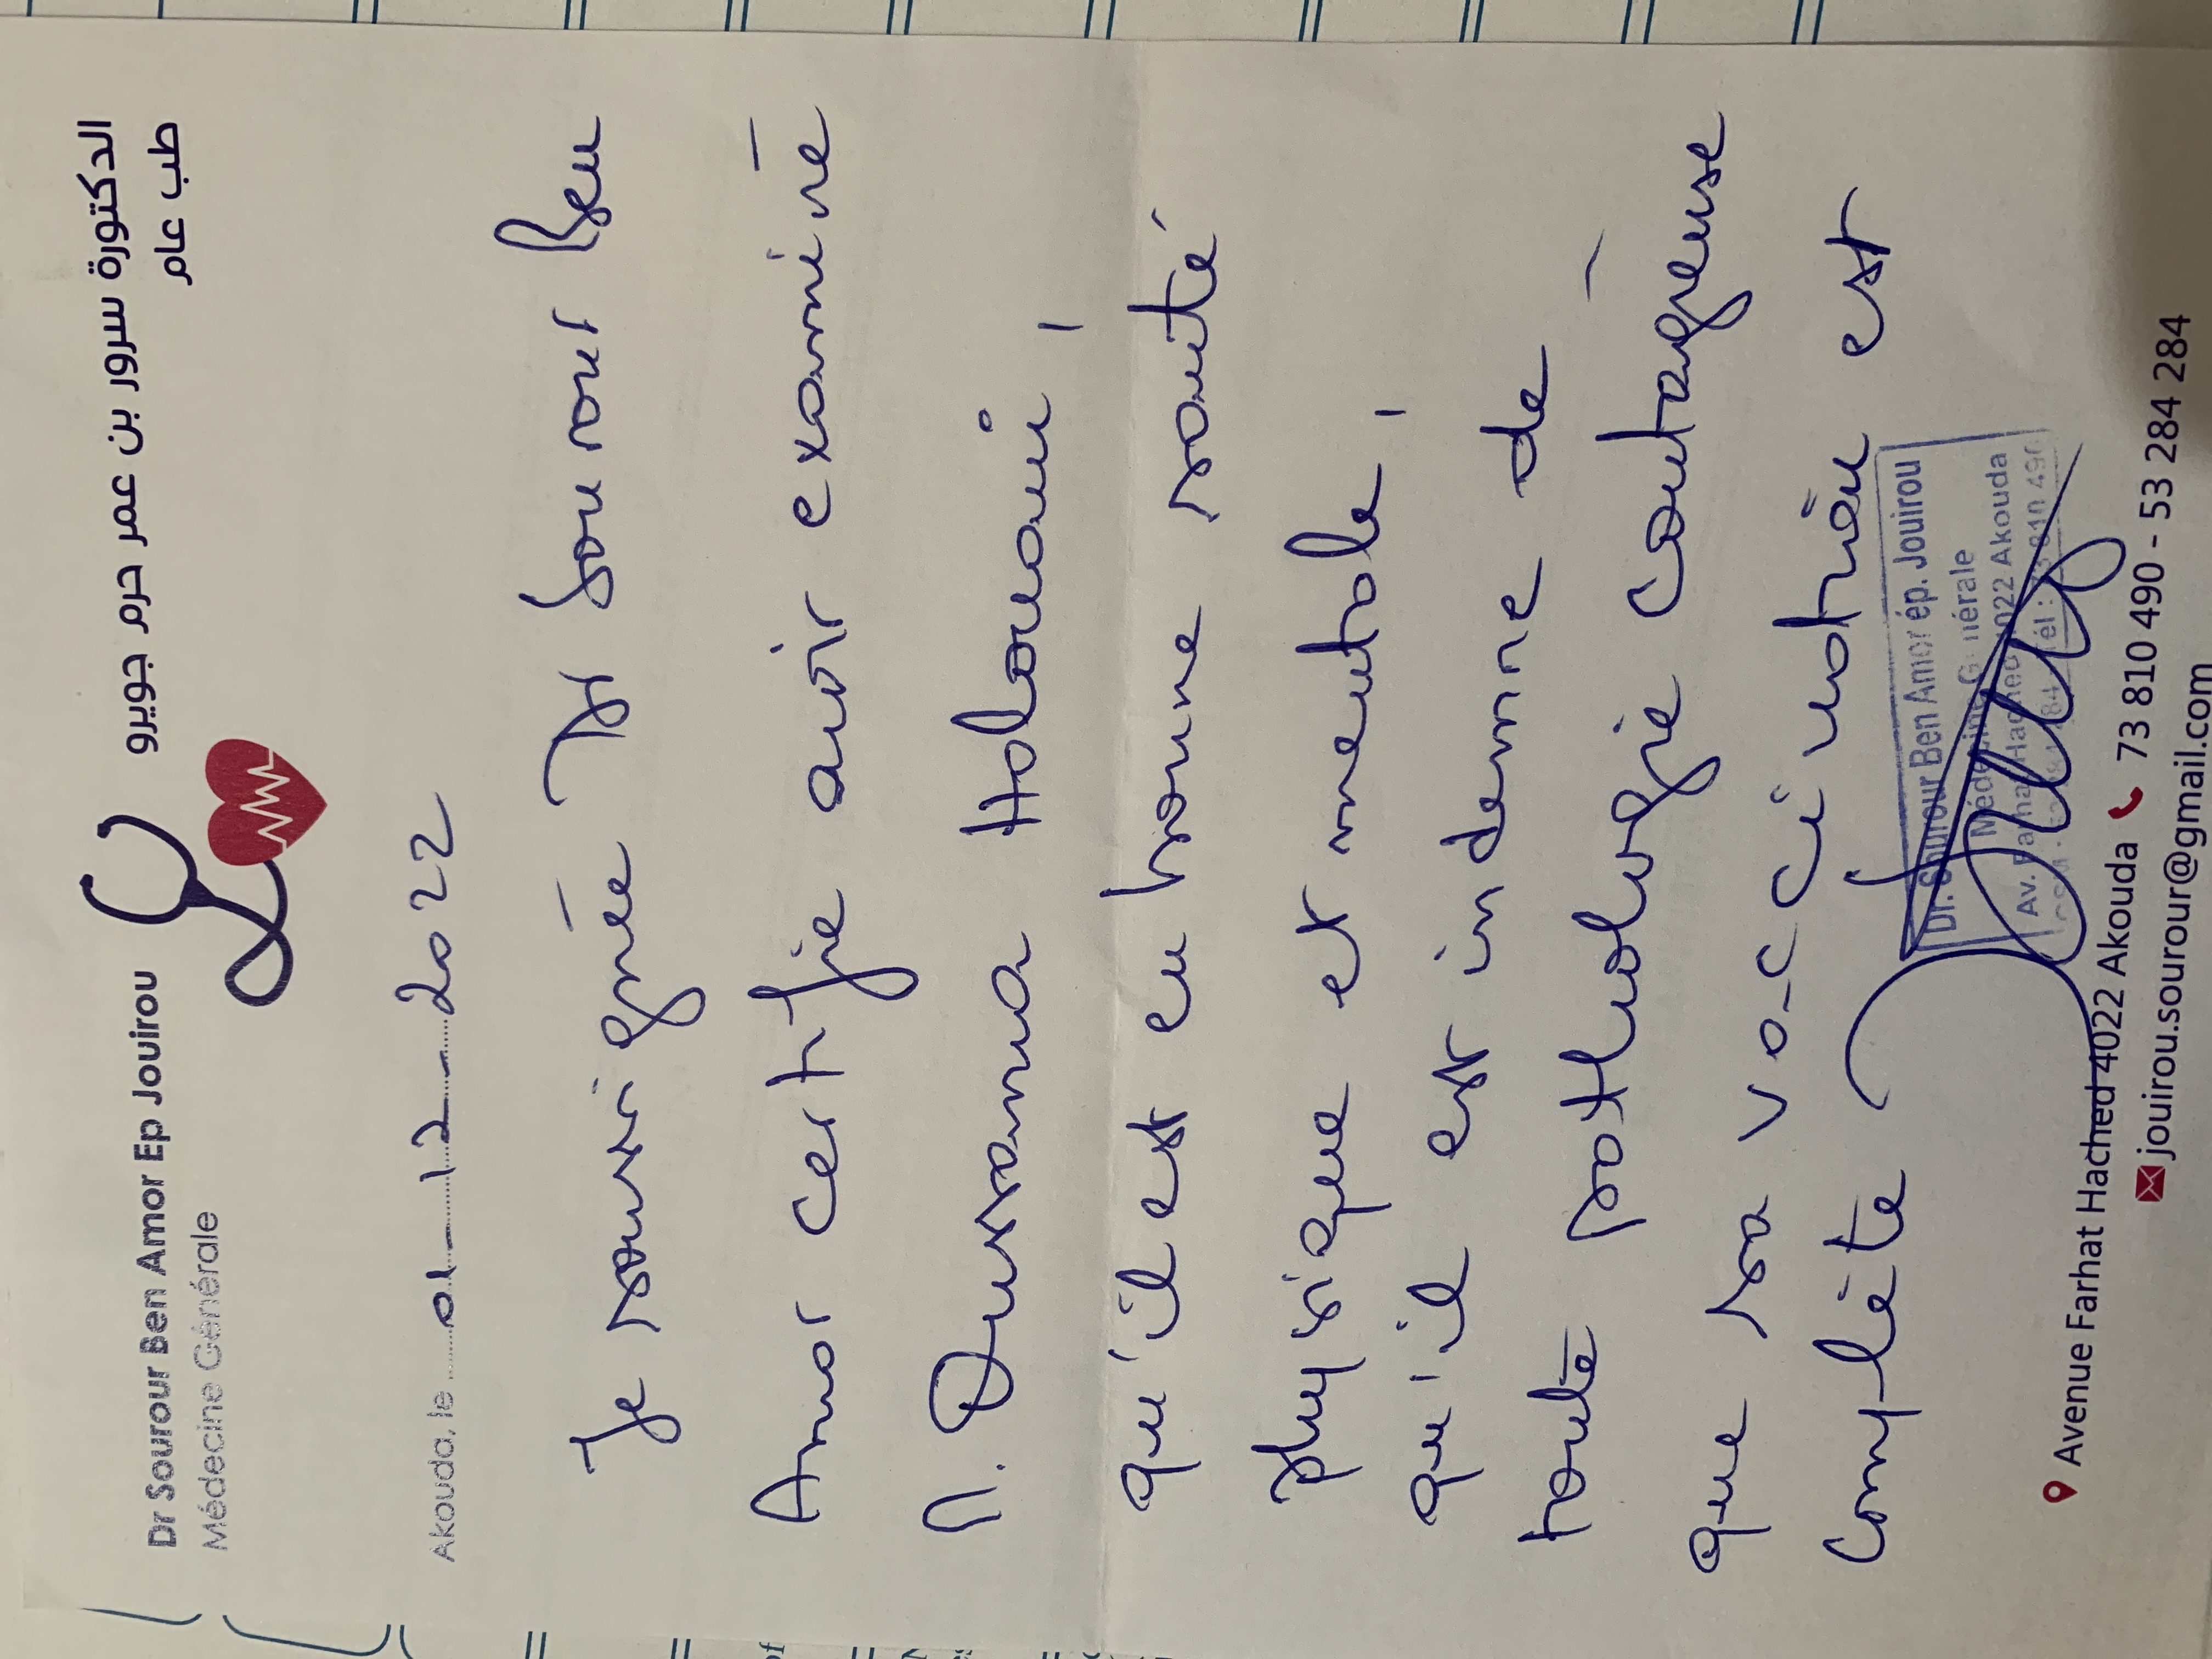 Dr Sourour Ben Amor Ep Jouirou
Médecine Générale
الدكتورة سرور بن عمر حرم جويرو
طب عام
Akouda, le 01_12_2022
Je soussignée Dr Sourour Ben
Amor certifie avoir examiné
M. Oussama Halouani,
qu'il est en bonne santé
physique et mentale,
qu'il est indemne de
toute pathologie contagieuse
que sa vaccination est
complète
Dr. Sourour Ben Amor ép. Jouirou
Médecine Générale
Av. Farhat Hached 4022 Akouda
Tél : 73 810 490
Avenue Farhat Hached 4022 Akouda 73 810 490 - 53 284 284
jouirou.sourour@gmail.com